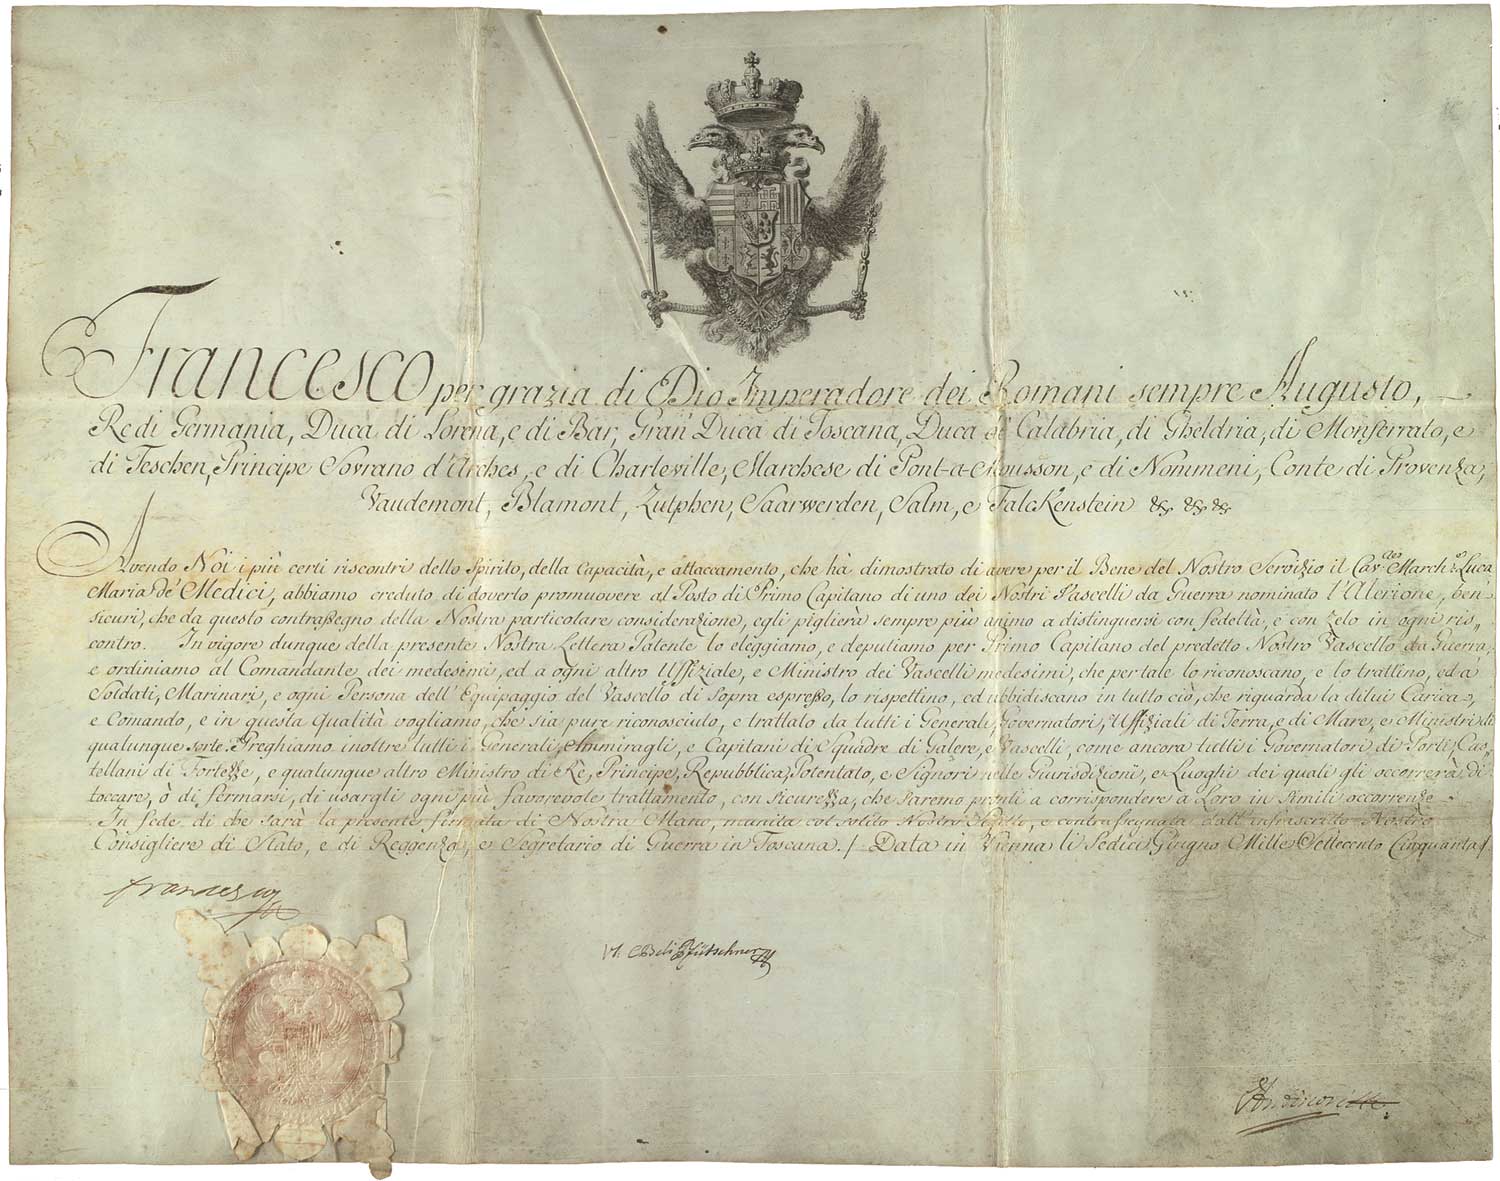 Francesco per grazia di Dio Imperadore dei Romani sempre Augusto,
Re di Germania, Duca di Lorena, e di Bar, Gran Duca di Toscana, Duca di Calabria, di Gheldria, di Monferrato, e
di Teschen, Principe Sovrano d'Arches, e di Charleville, Marchese di Pont-a-Mousson, e di Nommeni, Conte di Provenza,
Vaudemont, Blamont, Zutphen, Saarwerden, Salm, e Falckenstein & & &
Avendo Noi i più certi riscontri dello Spirito, della Capacità, e attaccamento, che hà dimostrato di avere per il Bene del Nostro Servizio il Cav.re March.e Luca
Maria de' Medici, abbiamo creduto di doverlo promuovere al Posto di Primo Capitano di uno dei Nostri Vascelli da Guerra nominato l'Alerione, ben
sicuri, che da questo contraßegno della Nostra particolare considerazione, egli piglierà sempre più animo a distinguersi con fedeltà, e con zelo in ogni ris„
contro. In vigore dunque della presente Nostra Lettera Patente lo eleggiamo, e deputiamo per Primo Capitano del predetto Nostro Vascello da Guerra,
e ordiniamo al Comandante dei medesimi, ed a ogni altro Uffiziale, e Ministro dei Vascelli medesimi, che per tale lo riconoscano, e lo trattino, ed a'
Soldati, Marinari, e ogni Persona dell'Equipaggio del Vascello di Sopra espreßo, lo rispettino, ed ubbidiscano in tutto ciò, che riguarda la di lui Carica,
e Comando, e in questa Qualità vogliamo, che sia pure riconosciuto, e trattato da tutti i Generali, Governatori, Uffiziali di Terra, e di Mare, e Ministri di
qualunque sorte. Preghiamo inoltre tutti i Generali, Ammiragli, e Capitani di Squadre di Galere, e Vascelli, come ancora tutti i Governatori di Porti, Cas„
tellani di Fortezze, e qualunque altro Ministro di Rè, Principe, Repubblica, Potentato, e Signori nelle Giurisdizioni, e Luoghi dei quali gli occorrerà di
toccare, ò di fermarsi, di usargli ogni più favorevole trattamento, con sicurezza, che saremo pronti a corrispondere a Loro in simili occorrenze
In fede di che sarà la presente firmata di Nostra Mano, munita col solito Nostro Sigillo, e contraßegnata dall'infrascritto Nostro
Consigliere di Stato, e di Reggenza, e Segretario di Guerra in Toscana. / Data in Vienna li Sedici Giugno Mille Settecento Cinquanta /.
Francesco
Pfütschner